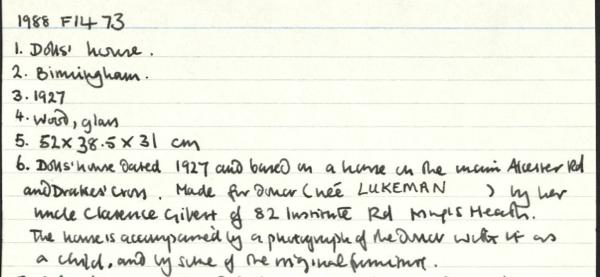 1988 F1473
1. Dolls' house.
2. Birmingham.
3. 1927
4. Wood, glass
5. 52 x 38.5 x 31 cm
6. Dolls' house dated 1927 and based on a house on the main Alcester Rd
and Drakes' Cross. Made for donor (née LUKEMAN ) by her
uncle Clarence Gilbert of 82 Institute Rd Kings Heath.
The house is accompanied by a photograph of the donor with it as
a child, and by some of the original furniture.